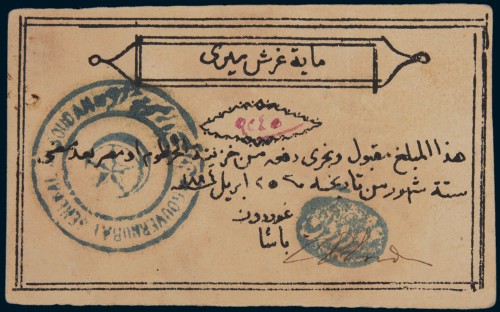 ماية غرش ميرى
٩٤٤٥
هذا المبلغ مقبول ويجرى دفعه من خزينة الخرطوم او مصر بعد مضى
ستة شهور من تاريخه ٢٥ ابريل ١٨٨٤
غوردون
باشا
GOUVERNORAT GÉNÉRAL SOUDAN